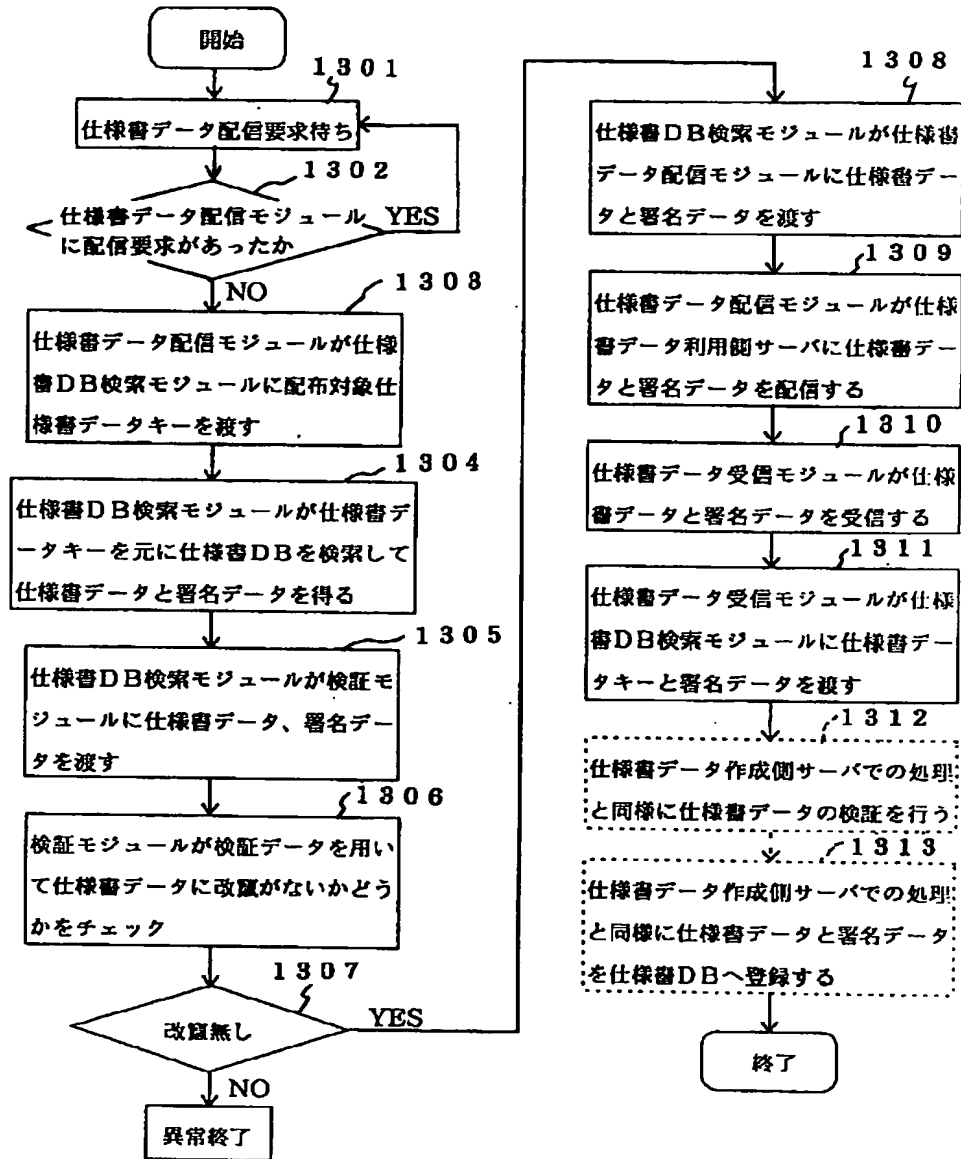 開始
1301
仕様書データ配信要求待ち
1302
仕様書データ配信モジュール
に配信要求があったか
YES
NO
1303
仕様書データ配信モジュールが仕様
書DB検索モジュールに配布対象仕
様書データキーを渡す
1304
仕様書DB検索モジュールが仕様書デー
タキーを元に仕様書DBを検索して
仕様書データと署名データを得る
1305
仕様書DB検索モジュールが検証モ
ジュールに仕様書データ、署名デー
タを渡す
1306
検証モジュールが検証データを用い
て仕様書データに改竄がないかどう
かをチェック
1307
改竄無し
YES
NO
異常終了
1308
仕様書DB検索モジュールが仕様書
データ配信モジュールに仕様書デー
タと署名データを渡す
1309
仕様書データ配信モジュールが仕様
書データ利用側サーバに仕様書デー
タと署名データを配信する
1310
仕様書データ受信モジュールが仕様
書データと署名データを受信する
1311
仕様書データ受信モジュールが仕様
書DB検索モジュールに仕様書デー
タキーと署名データを渡す
1312
仕様書データ作成側サーバでの処理
と同様に仕様書データの検証を行う
1313
仕様書データ作成側サーバでの処理
と同様に仕様書データと署名データ
を仕様書DBへ登録する
終了